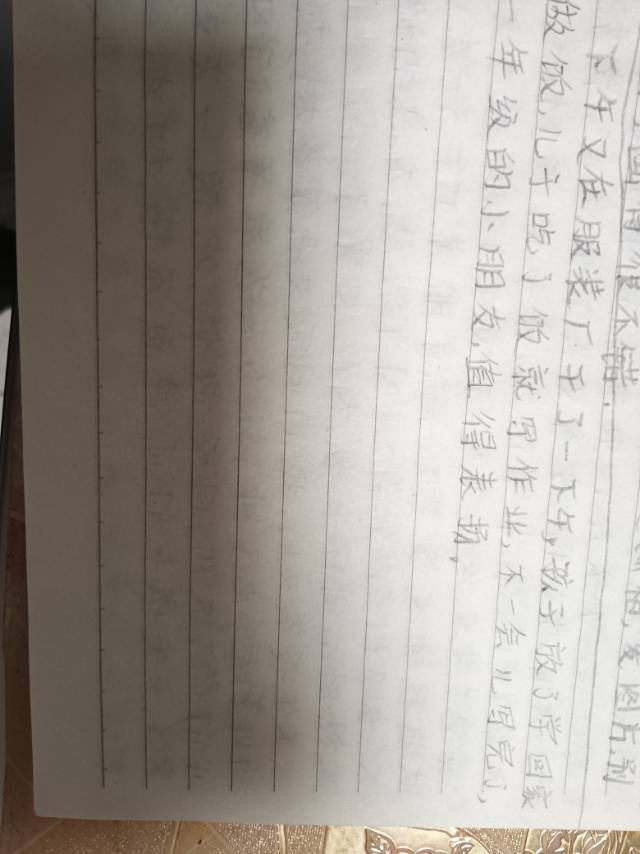 的,发图片,到
很不错.
下午又在服装厂干了一下午,孩子放了学回家
做饭,儿子吃了饭就写作业,不一会儿写完了,
一年级的小朋友,值得表扬,